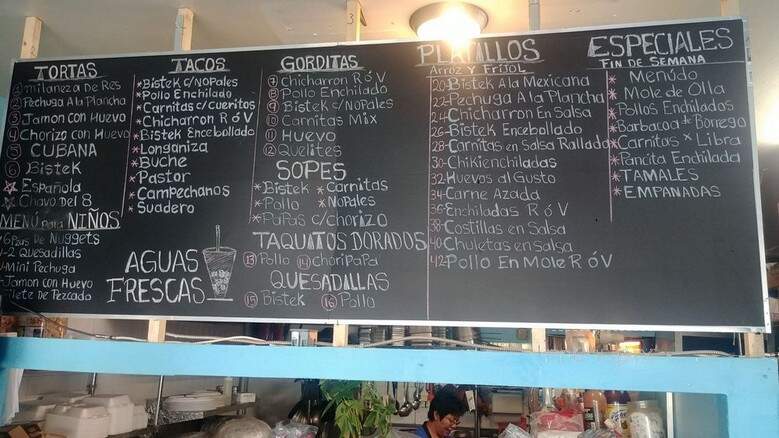 TORTAS
① Milaneza de Res
② Pechuga A la Plancha
3 Jamon con Huevo
4 Chorizo con Huevo
5 CUBANA
6 Bistek
Española
Chavo Del 8
MENÚ para NIÑOS
6 Pzas De Nuggets
-2 Quesadillas
Mini Pechuga
Jamon con Huevo
De Pezcado
TACOS
* Bistek c/Nopales
* Pollo Enchilado
* Carnitas c/cueritos
* Chicharron R ó V
* Bistek Encebollado
* Longaniza
* Buche
* Pastor
* Campechanos
* Suadero
AGUAS
FRESCAS
GORDITAS
⑦ Chicharron R ó V
⑧ Pollo Enchilado
⑨ Bistek c/Nopales
⑩ Carnitas Mix
⑪ Huevo
⑫ Quelites
SOPES
* Bistek * Carnitas
* Pollo * Nopales
* Papas c/chorizo
TAQUITOS DORADOS
⑬ Pollo ⑭ Choripapa
QUESADILLAS
⑮ Bistek ⑯ Pollo
PLATILLOS
Arroz Y Frijol
20- Bistek A la Mexicana
22- Pechuga A la Plancha
24- Chicharron En Salsa
26- Bistek Encebollado
28- Carnitas en Salsa Rallada
30- Chikienchiladas
32- Huevos al Gusto
34- Carne Azada
36- Enchiladas R ó V
38- Costillas en Salsa
40- Chuletas en Salsa
42- Pollo En Mole R ó V
ESPECIALES
FIN DE SEMANA
* Menúdo
* Mole de Olla
* Pollos Enchilados
* Barbacoa de Borrego
* Carnitas x Libra
* Pancita Enchilada
* TAMALES
* EMPANADAS